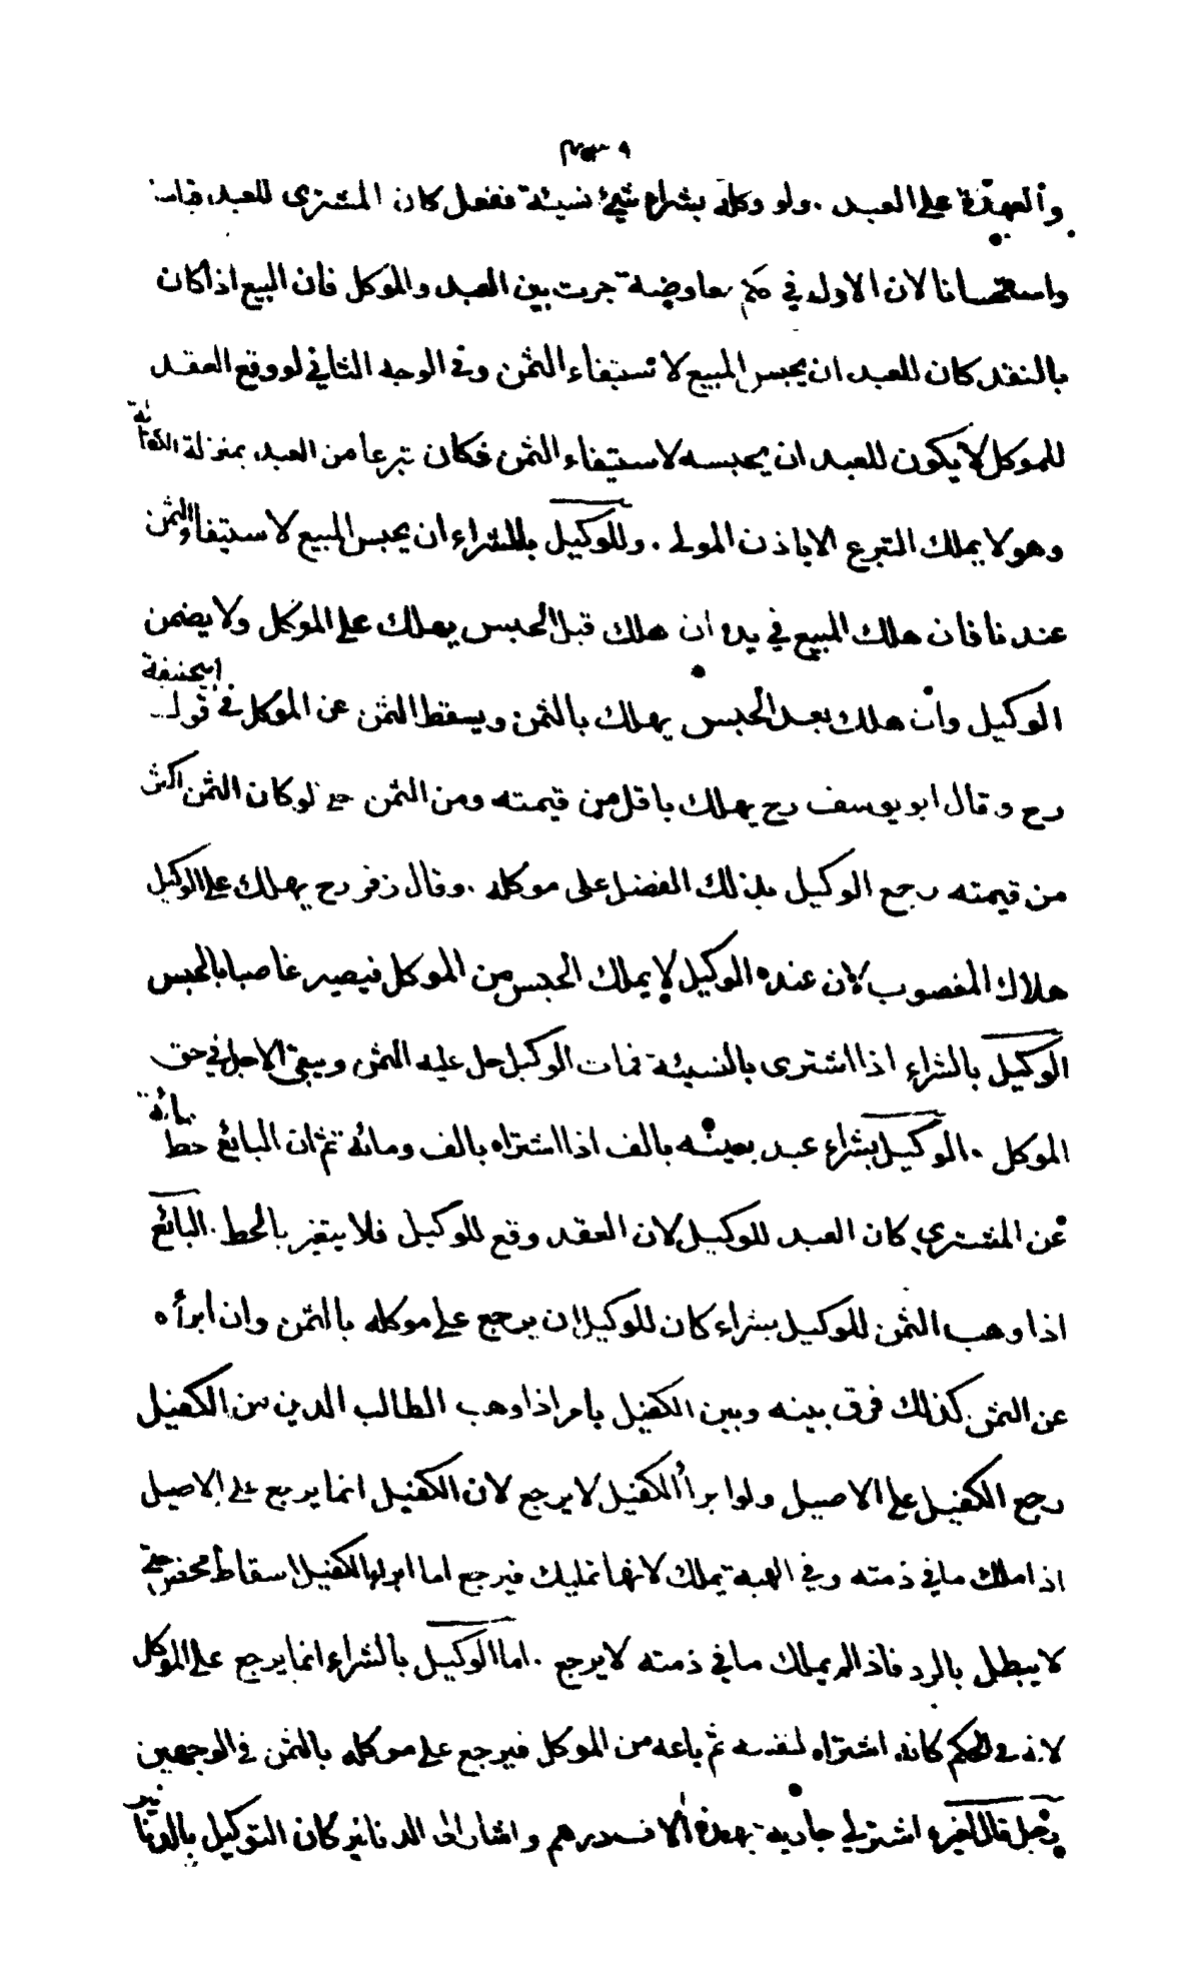 والعهدة على العبد . ولو وكله بشراء شيئ نسيئة ففعل كان المشترى للعبد قياسا
واستحسانا لان الاول في حكم معاوضة جرت بين العبد والموكل فان البيع اذا كان
بالنقد كان للعبد ان يحبس المبيع لاستيفاء الثمن وفي الوجه الثاني لو وقع العقد
للموكل لا يكون للعبد ان يحبسه لاستيفاء الثمن فكان تبرعا من العبد بمنزلة الكفالة
وهو لا يملك التبرع الا باذن المولى . وللوكيل بالشراء ان يحبس المبيع لاستيفاء الثمن
عندنا فان هلك المبيع في يده ان هلك قبل الحبس يهلك على الموكل ولا يضمن
الوكيل وان هلك بعد الحبس يهلك بالثمن ويسقط الثمن عن الموكل في قول ابيحنيفة
رح وقال ابو يوسف رح يهلك باقل من قيمته ومن الثمن حتى لو كان الثمن اكثر
من قيمته رجع الوكيل بذلك الفضل على موكله . وقال زفر رح يهلك على الوكيل
هلاك المغصوب لان عنده الوكيل لا يملك الحبس من الموكل فيصير غاصبا بالحبس
الوكيل بالشراء اذا اشترى بالنسيئة فمات الوكيل حل عليه الثمن ويبقى الاجل في حق
الموكل . الوكيل بشراء عبد بعينه بالف اذا اشتراه بالف ومائة ثم ان البائع حط مائة
عن المشتري كان العبد للوكيل لان العقد وقع للوكيل فلا يتغير بالحط . البائع
اذا وهب الثمن للوكيل بشراء كان للوكيل ان يرجع على موكله بالثمن وان ابرأه
عن الثمن كذلك فرق بينه وبين الكفيل بامر اذا وهب الطالب الدين من الكفيل
رجع الكفيل على الاصيل ولو ابرأ الكفيل لا يرجع لان الكفيل انما يرجع على الاصيل
اذا ملك ما في ذمته وفي الهبة يملك لانها تمليك فيرجع اما ابراء الكفيل اسقاط محض حتى
لا يبطل بالرد فاذا لم يملك ما في ذمته لا يرجع . اما الوكيل بالشراء انما يرجع على الموكل
لانه في الحكم كانه اشتراه لنفسه ثم باعه من الموكل فيرجع على موكله بالثمن في الوجهين
رجل قال لغيره اشتر لي جارية بهذه الالف درهم واشار الى الدنانير كان التوكيل بالدنانير